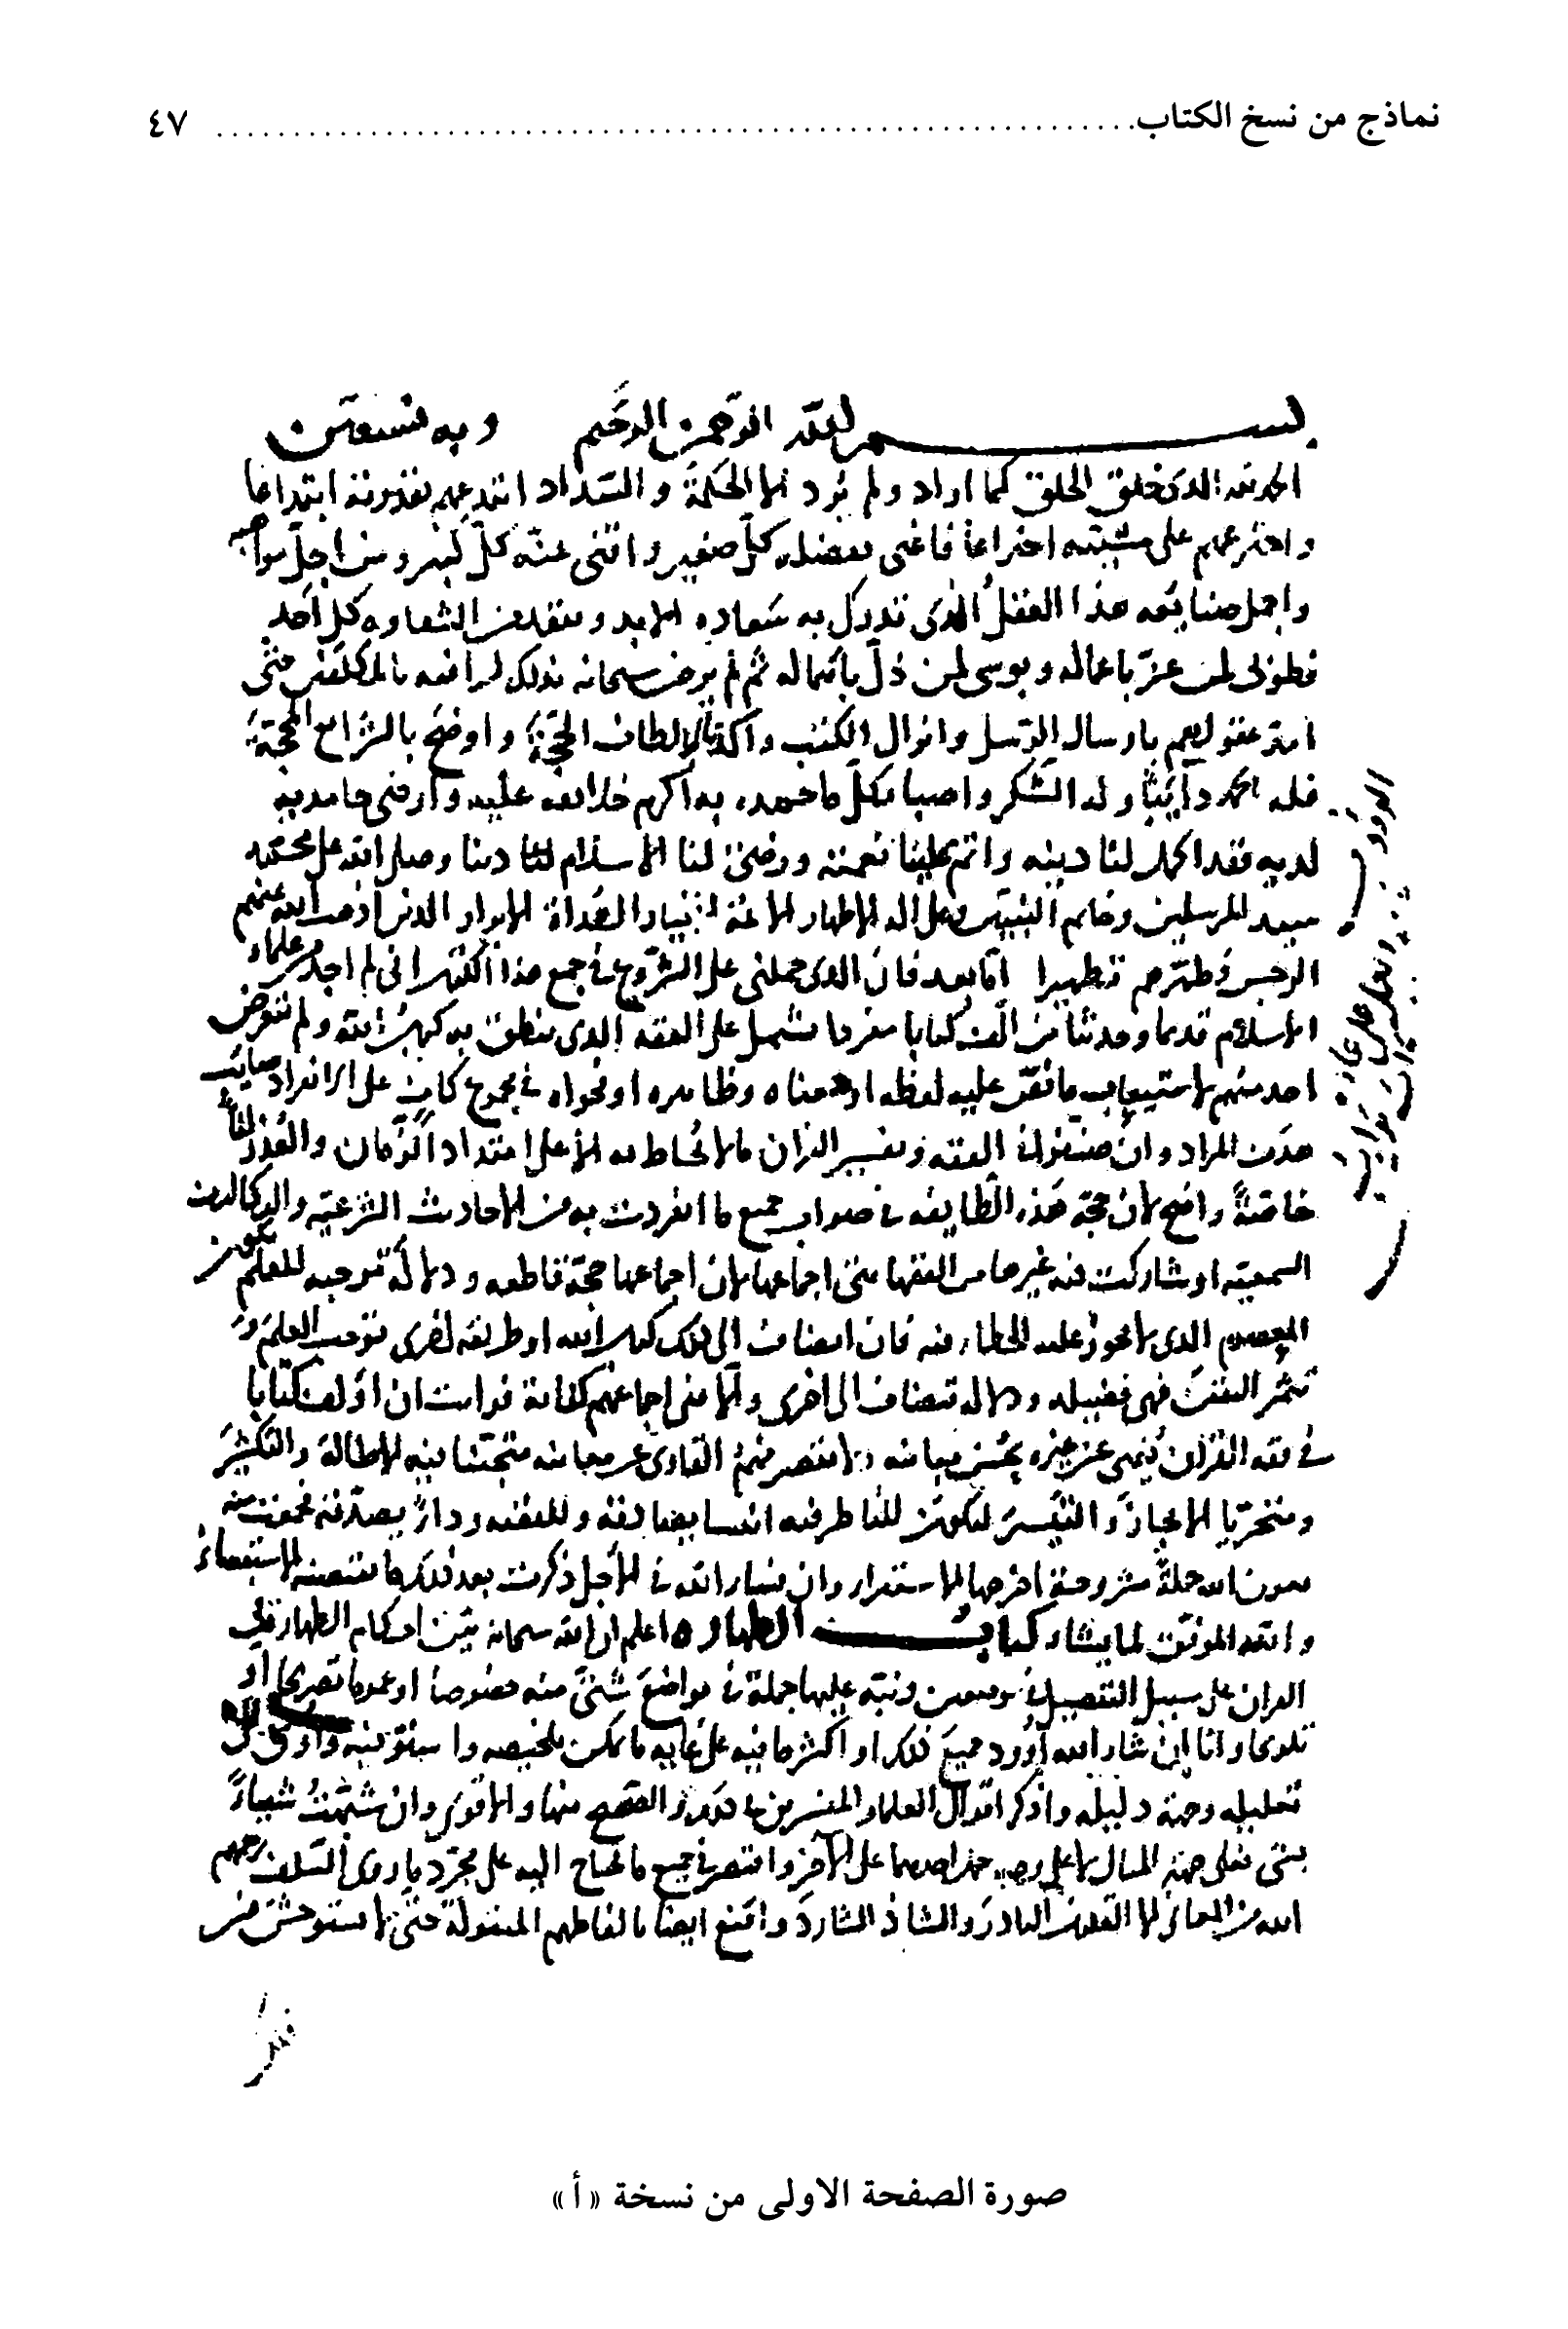 نماذج من نسخ الكتاب ............................................................ ٤٧
بسم الله الرحمن الرحيم وبه نستعين
الحمد لله الذى خلق الخلق كما اراد ولم يرد الا الحكمة والسداد ابتدعهم بقدرته ابتداعا
واخترعهم على مشيته اختراعا فاغنى بفضله كل صغير واقنى بمنه كل كبير ومن اجل مواهبه
واجمل صنايعه هذا العقل الذى تدرك به سعاده الابد وينقذ من الشقاوه كل احد
فطوبى لمن عز باعماله وبوسى لمن ذل باهماله ثم لم يرض سبحانه بذلك لرأفته بالمكلفين حتى
امد عقولهم بارسال الرسل وانزال الكتب واكد بالالطاف الحجة واوضح بالشرائع المحجة
فله الحمد دايبا وله الشكر واصبا بكل ما حمده به اكرم خلائقه عليه وارضى حامديه
لديه فقد اكمل لنا دينه واتم علينا نعمته ورضى لنا الاسلام دينا وصلى الله على محمد
سيد المرسلين وخاتم النبيين وعلى اله الاطهار الائمة الاخيار الهداة الابرار الذين اذهب الله عنهم
الرجس وطهرهم تطهيرا اما بعد فان الذى حملنى على الشروع فى جمع هذا الكتاب انى لم اجد من علماء
الاسلام قديما وحديثا من الف كتابا مفردا يشتمل على الفقه الذى ينطق به كتاب الله ولم يتعرض
احد منهم لاستيعاب ما نص عليه لفظه او معناه وظاهره او فحواه فى مجموع كان على الانفراد
هدف المراد وان صنفوا فى الفقه وتفسير القران ما لا يحاط به الا على امتداد الزمان والعذر لنا
خاصة واضح لان حجة هذه الطايفه فى صواب جميع ما انفردت به من الاحاديث الشرعيه والتكاليف
السمعيه او شاركت فيه غيرها من الفقهاء هى اجماعها لان اجماعها حجة قاطعه ودلالة موجبه للعلم بكون
المعصوم الذى لا يجوز عليه الخطاء فيه فان انضاف الى ذلك كتاب الله او طريقه اخرى توجب العلم و
تثمر اليقين فهى فضيله ودلاله تنضاف الى اخرى والا ففى اجماعهم كفاية فرايت ان اؤلف كتابا
فى فقه القران يغنى عن غيره بحسن بيانه ولا يقصر فهم القارى عن معانيه متجنبا فيه الاطالة والتكثير
ومتحريا الايجاز والتيسير ليكون للناظر فيه انسا يصادقه وللفقيه ردءا يصدقه فجمعت منه
بعون الله جملة مشروحة اخرجها الاستقرار وان نسأ الله فى الاجل ذكرت بعد ذلك ما يقتضيه الاستقصاء
والله الموفق لما يشاء كتاب الطهاره اعلم ان الله سبحانه بين احكام الطهارة فى
القران على سبيل التفصيل فى موضعين ونبه عليها جملة فى مواضع شتى منه خصوصا او عموما تصريحا او
تلويحا وانا ان شاء الله اورد جميع ذلك او اكثر ما فيه على غايه ما يمكن تلخيصه واستوفيه
تعليله وجهة دليله واذكر اقوال العلماء المفسرين فى ذلك والصحيح منها والاقوى وان شبهت شيئا
بشئ فعلى جهة المثال لا على وجه حمل احدهما على الاخر واقتصر فى جميع ما يحتاج اليه على مجرد ما روى السلف رحمهم
الله من المعانى الا القليل النادر والشاذ الشارد واقنع ايضا بالفاظهم المنقولة حتى لا يستوحش من
صورة الصفحة الاولى من نسخة «أ»